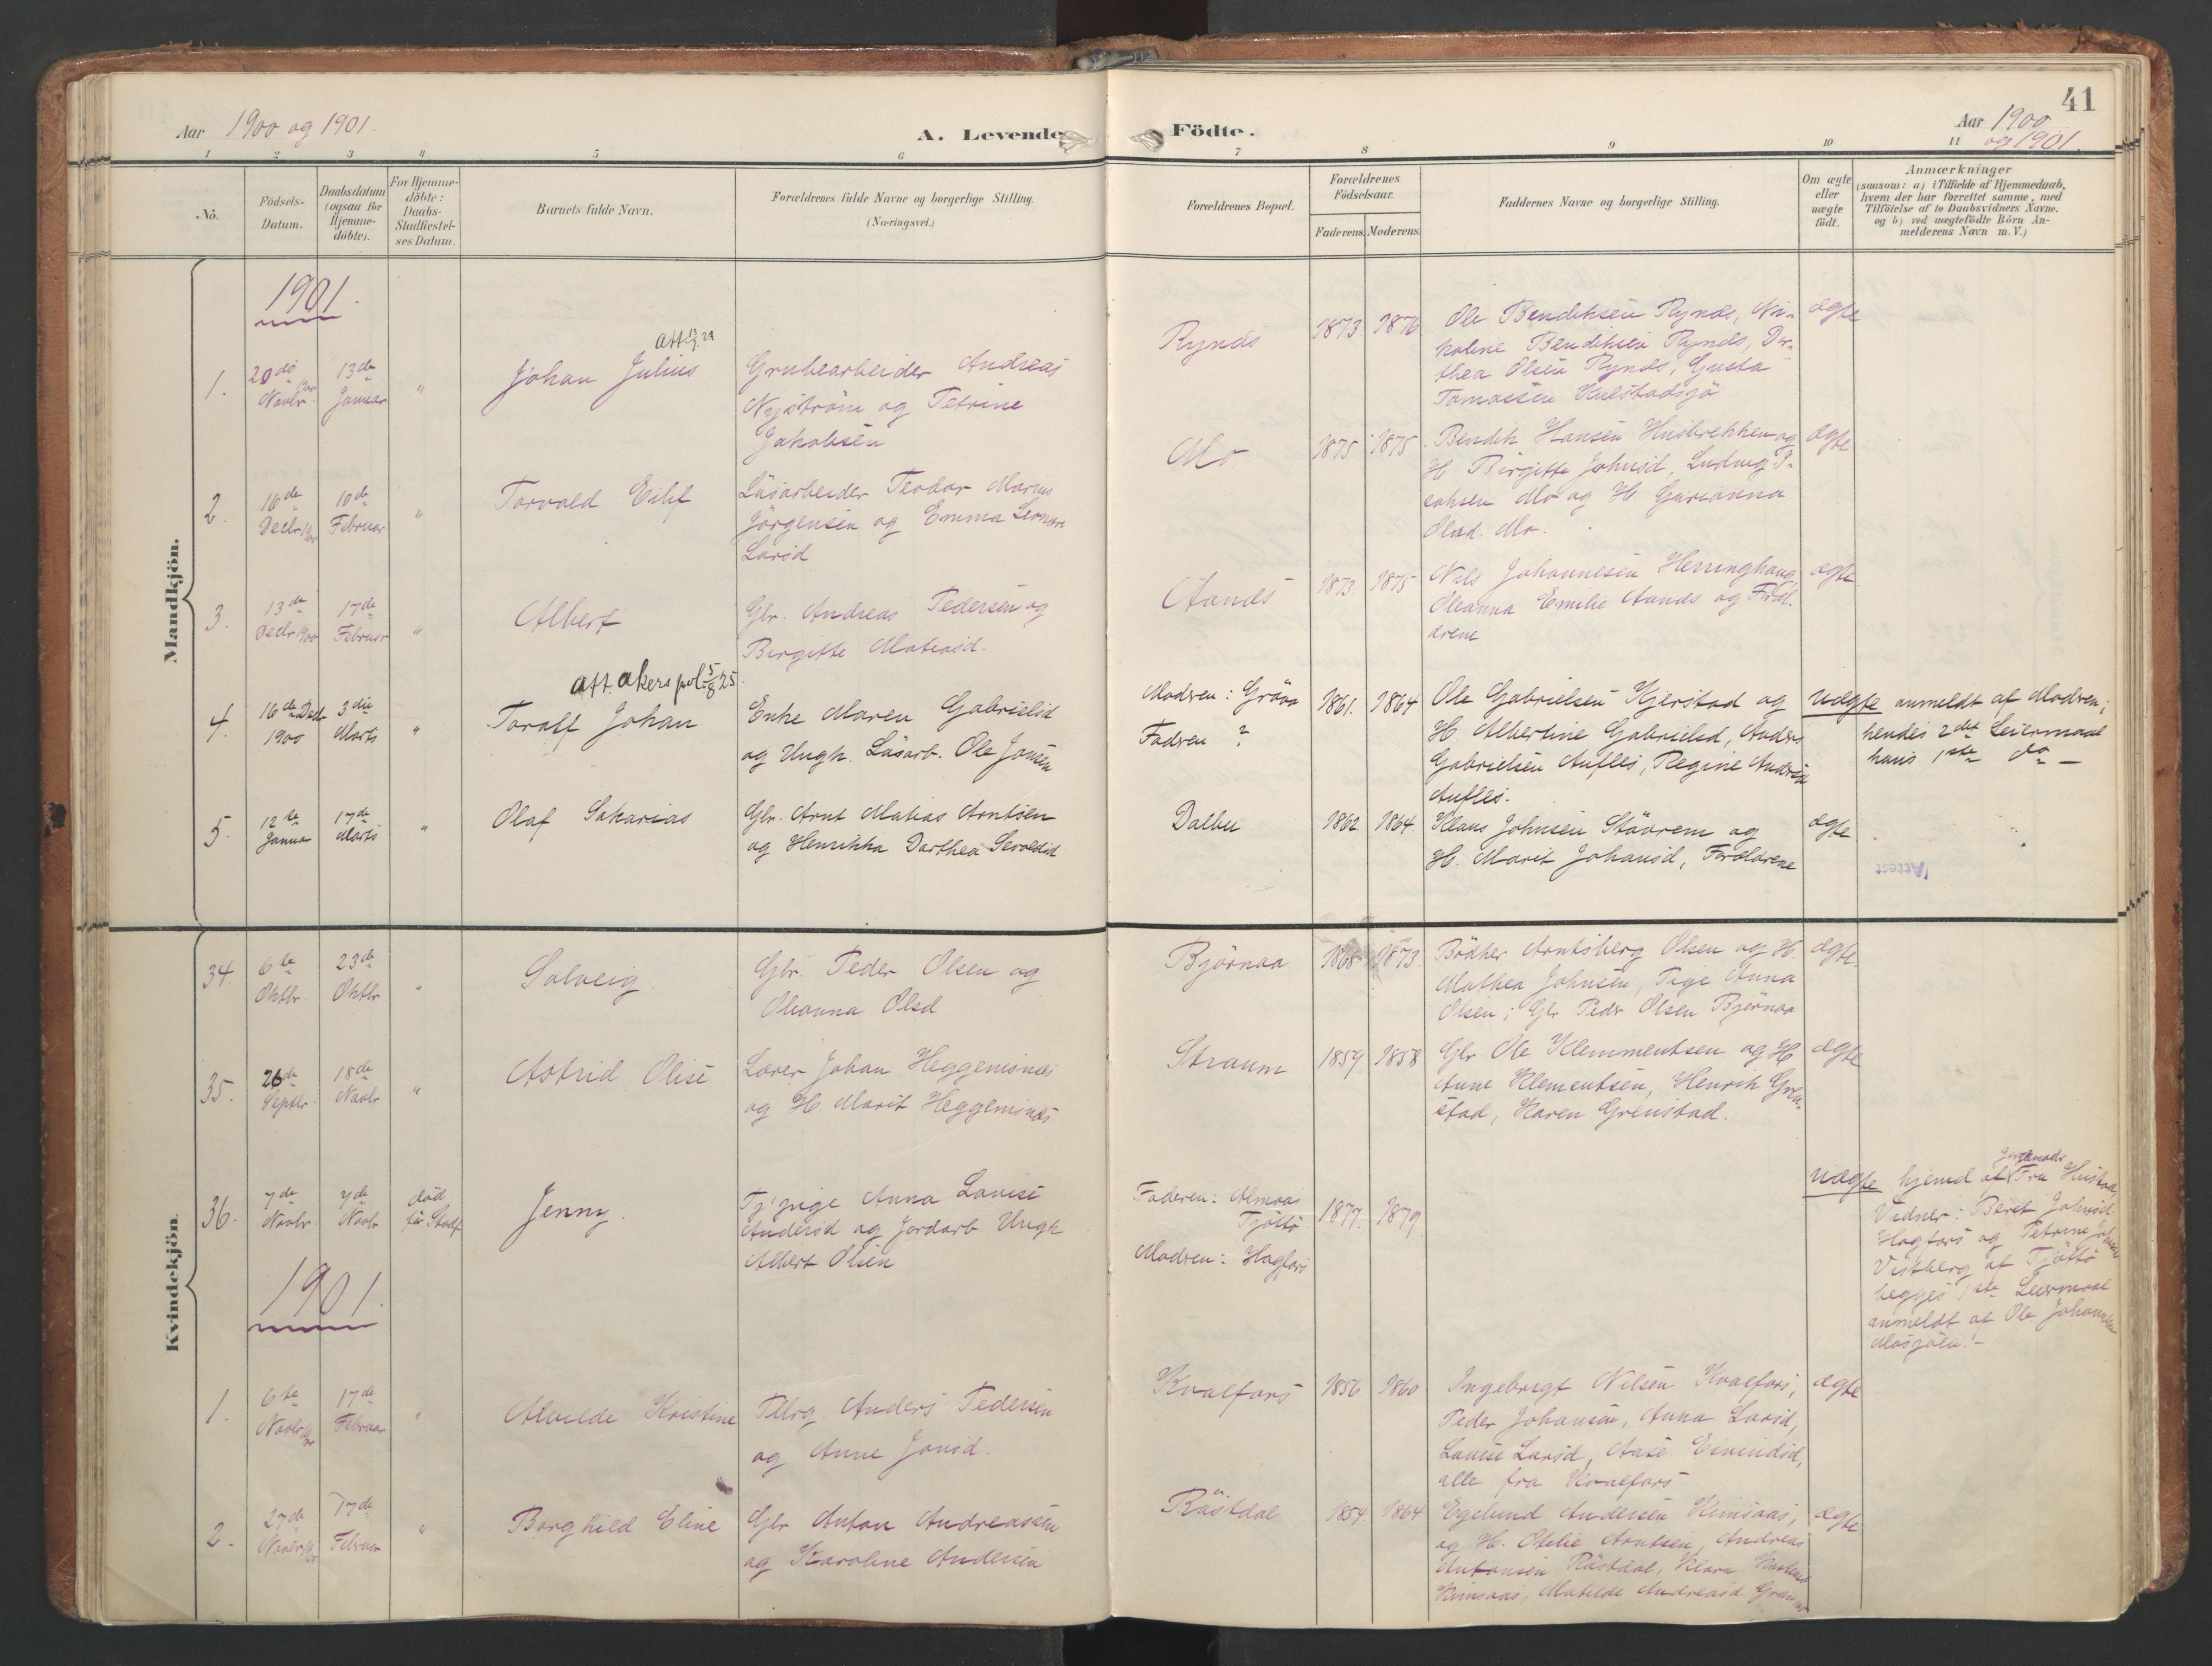 Aar 1900 og 1901.
A. Levende Födte.
Aar 1900 og 1901.
41
1 2 3 4 5 6 7 8 9 10 11
No.
Födsels-Datum.
Daabsdatum (ogsaa for Hjemme-döbte).
For Hjemme-döbte: Daabs-Stadfæstel-ses Datum.
Barnets fulde Navn.
Forældrenes fulde Navne og borgerlige Stilling.
(Næringsvei.)
Forældrenes Bopæl.
Forældrenes Födselsaar.
Faderens. Moderens.
Faddernes Navne og borgerlige Stilling.
Om ægte eller uægte födt.
Anmærkninger
(saasom: a) i Tilfælde af Hjemmedaab,
hvem der har forrettet samme, med
Tilföielse af to Daabsvidners Navne.
og b) ved uægtefödte Börn An-
melderens Navn m. V.)
Mandkjön.
1901.
1. 20de Novbr. 1900
13de Januar
"
Johan Julius
Grubearbeider Andreas
Nyström og Petrine
Jakobsen
Rynes
1873 1876
Ole Bendiksen Rynes, Ni-
koline Bendiksen Rynes, Do-
thea Olsen Rynes, Gusta
Tomassen Kulstadsjö
ægte
2. 16de Decbr. 1900
10de Februar
"
Torvald Eilif
Läsarbeider Teodor Marius
Jörgensen og Emma Leonore
Larsd
Mo.
1875 1875
Bendik Hansen Husbrekken og
H. Birgitte Johnsd, Ludvig I-
saksen Mo og H. Gurianna
Olsd. Mo.
ægte
3. 13de Decbr 1900
17de Februar
"
Albert
Gbr. Andreas Pedersen og
Birgitte Matiasd.
Aanes
1873 1875
Nils Johannesen Herringhaug,
Oleanna Emilie Aanes og Foræl-
drene
ægte
Att. Akers pol. 5/8 25.
4. 16de Decb 1900
3die Marts
"
Toralf Johan
Enke Maren Gabrielsd
og Ungk. Läsarb. Ole Jonsen
Modren: Gröva
Fadren ?
1861. 1864
Ole Gabrielsen Kjerstad og
H. Albertine Gabrielsd, Anders
Gabrielsen Aufles, Regine Andrsd
Aufles.
uægte
anmeldt af Modren;
hendes 2det Leiermaal
hans 1ste do —
5. 12te Januar
17de Marts
"
Olaf Sakarias
Gbr. Arnt Matias Arntsen
og Henrikka Dorthea Sevaldsd
Dalbu
1862 1864
Klaus Johnsen Stävrem og
H. Marit Johansd, Forældrene
ægte
Attest
Kvindekjön.
34. 6te Oktbr.
23de Oktbr
"
Solveig
Gbr. Peder Olsen og
Oleanna Olsd
Björnaa
1868 1873.
Bödker Arntsberg Olsen og H.
Mathea Johnsen, Pige Anna
Olsen; Gbr Peder Olsen Björnaa
ægte.
35. 26de Septbr.
18de Novbr
"
Astrid Olise
Lærer Johan Heggemsnes
og H. Marit Heggemsnes
Straum
1859. 1858
Gbr. Ole Klemmentsen og H.
Anne Klementsen, Henrik Gren-
stad, Karen Grenstad.
ægte
36. 7de Novbr.
7de Novbr.
död för Stadf
Jenny.
Tj. pige Anna Louise
Andersd og Jordarb Ungk
Albert Olsen
Faderen: Almaas
Tjöttö
Modren: Hagfors
1877. 1879
uægte
hjemd af Fru Hustad,
Vidner: Beret Johnsd
Hagfors og Petrine
Vistberg af Tjöttö
begges 1ste Leiermaal
anmeldt af Ole Johannsen
Mosjöen! —
1901.
1. 6te Novbr 1900
17de Februar
"
Alvilde Kristine
Anders Pedersen
og Anne Jonsd.
Kvalfors
1856 1860
Ingebrigt Nilsen Kvalfors,
Peder Johansen, Anna Larsd,
Louise Larsd, Aase Eivindsd,
alle fra Kvalfors
ægte
2. 27de Novbr 1900
17de Februar
"
Borghild Eline
Gbr Anton Andreassen
og Karoline Andersen
Rästdal
1854. 1864
Egelund Andersen Kimsaas,
og H. Otelie Arntsen, Andreas
Antonsen Rästdal, Klara
Kimsaas, Matilde Andreasd
ægte